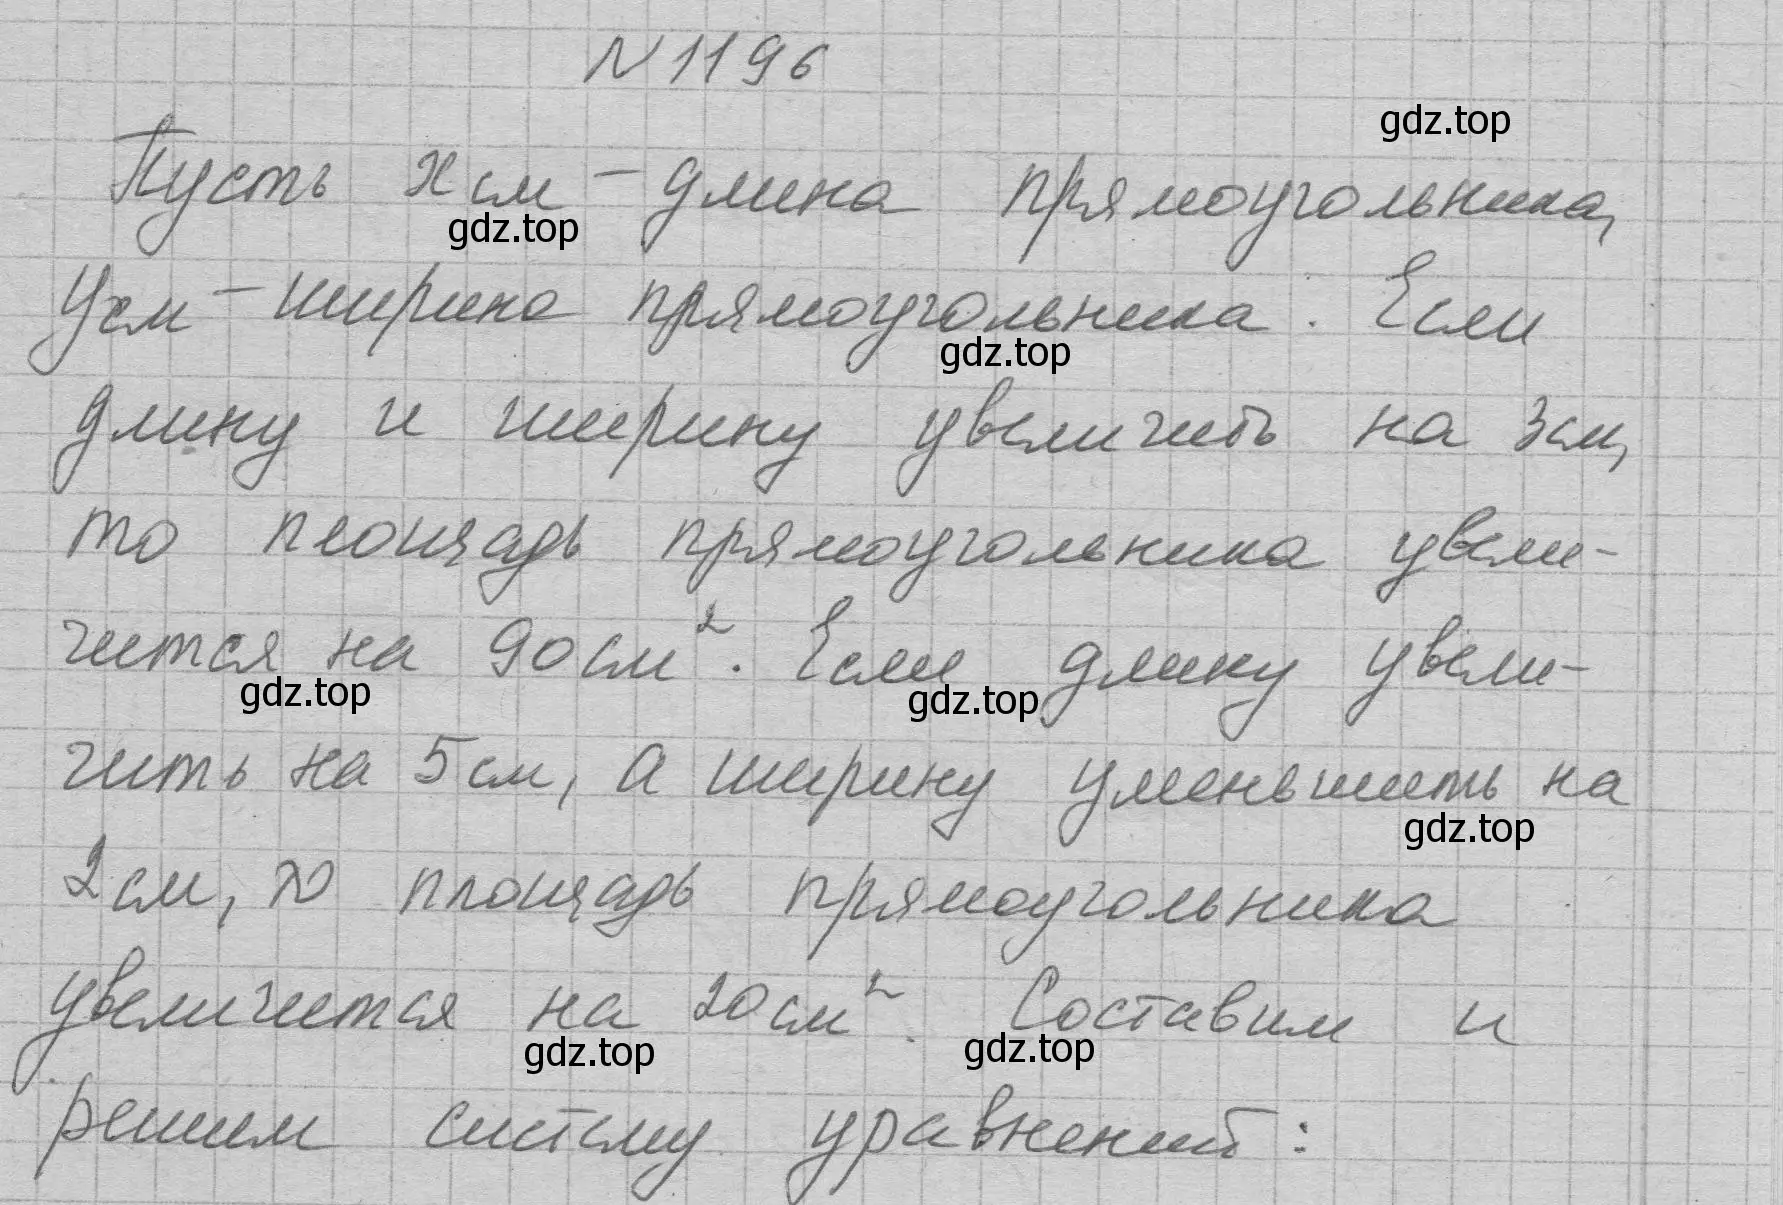 N 1196
gdz.top
Пусть x см - длина прямоугольника,
gdz.top
y см - ширина прямоугольника. Если
gdz.top
длину и ширину увеличить на 3 см,
то площадь прямоугольника увели-
чится на 90 см². Если длину увели-
gdz.top
gdz.top
чить на 5 см, а ширину уменьшить на
gdz.top
2 см, то площадь прямоугольника
увеличится на 20 см². Составим и
gdz.top
gdz.top
решим систему уравнений: